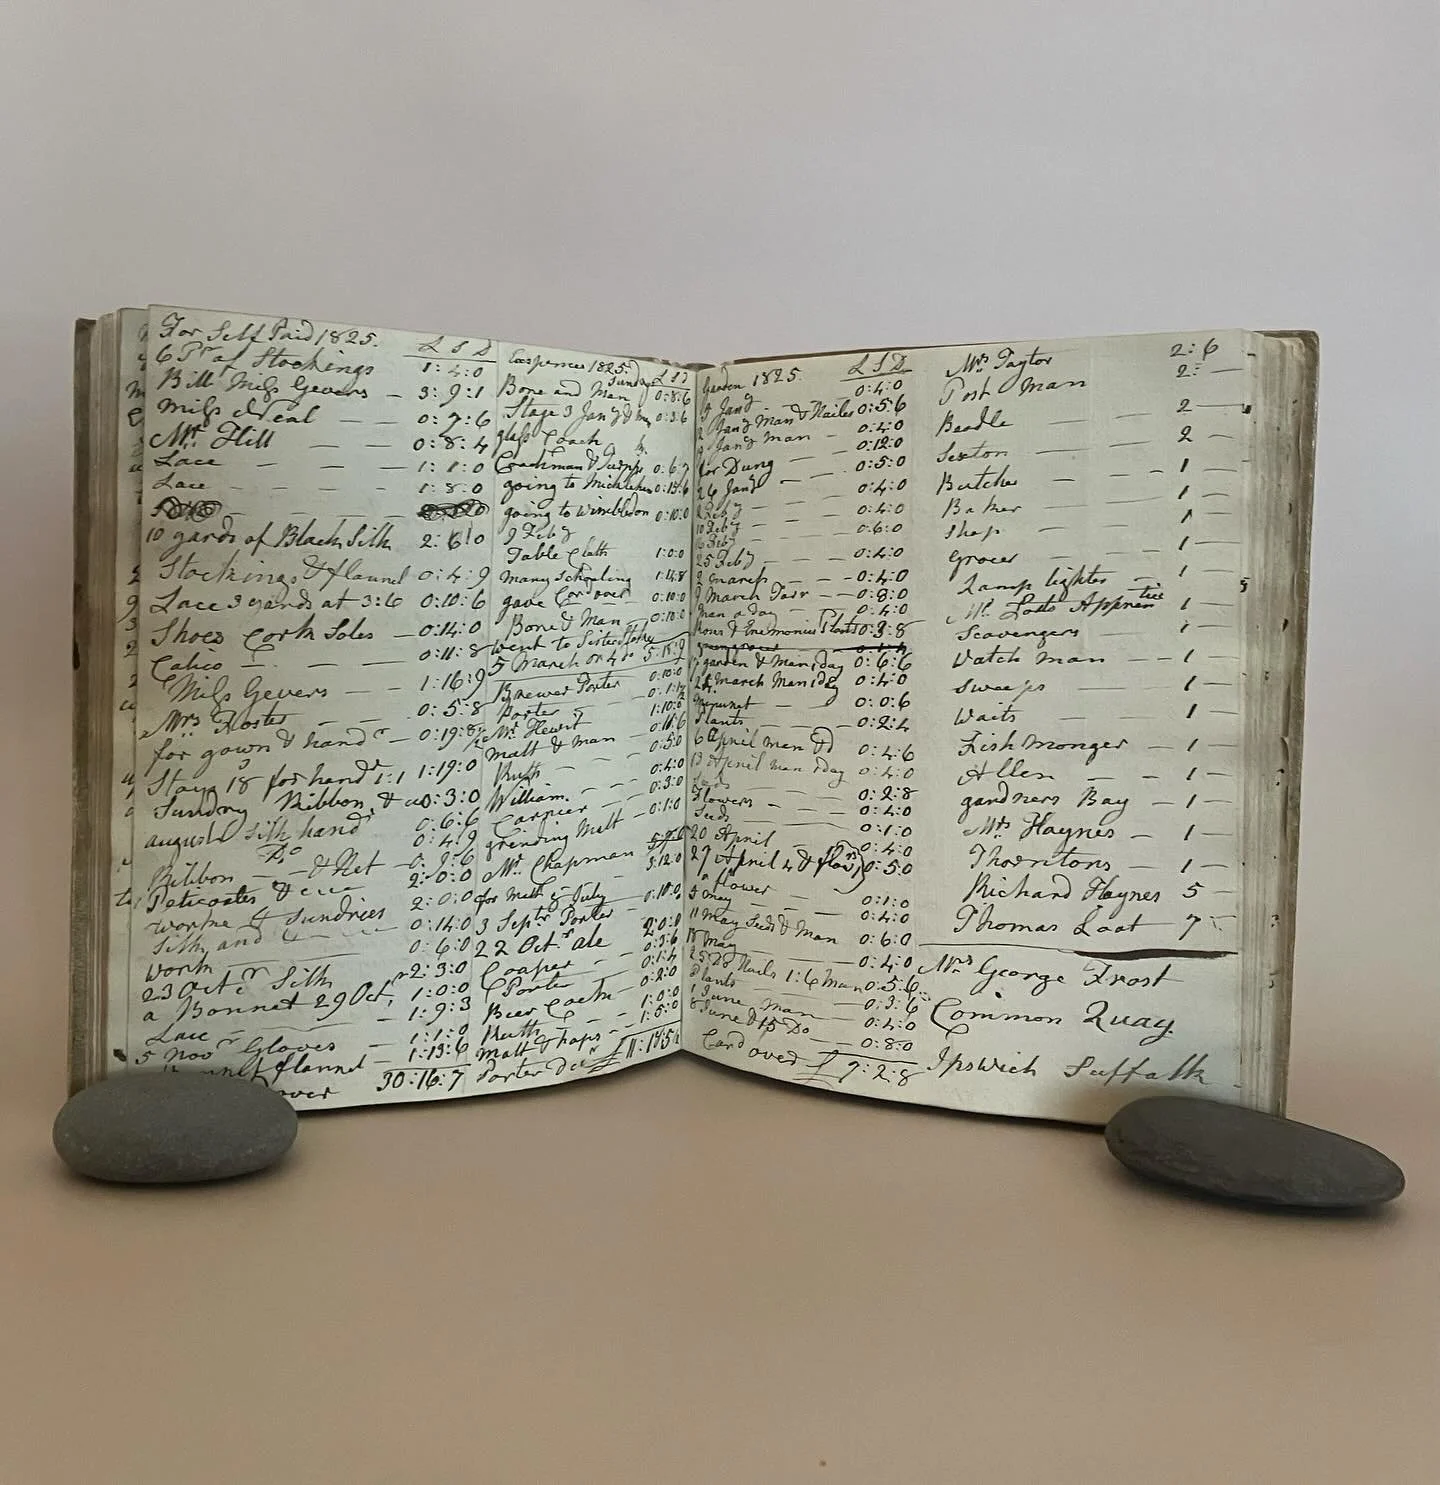 For Self Paid 1825.
L S D
6 Pr of Stockings 1:4:0
Bill Miss Gevers — 3:9:1
Miss Neal — — 0:7:6
Mr. Hill 0:8:4
Lace — — — 1:1:0
Lace — — — 1:8:0
10 yards of Black Silk 2:6:0
Stockings & flannel 0:4:9
Lace 3 yards at 3:6 0:10:6
Shoes Cork Soles — 0:14:0
Calico — — — 0:11:8
Miss Gevers — — 1:16:9
Mrs Foster — — 0:5:8
for gown & handr — 0:19:8
Stays 18 for handr 1:1 1:19:0
Sundry Ribbon & 0:3:0
august Silk handr 0:6:6
Do 0:4:9
Ribbon — & Net
Peticoates & 2:0:0
worke & Sundries 2:0:0
Silk and 0:14:0
work 0:6:0
23 Octr Silk 2:3:0
a Bonnet 29 Octr 1:0:0
Lace 1:9:3
5 Novr Gloves 1:1:0
flannel 1:13:6
over 30:16:7
Expences 1825
Sunday L S D
Bone and Man 0:8:6
Stage 3 Jany & 0:3:6
glass Coach
Coachman &
going to 0:15:6
going to Wimbledon 0:10:0
9 Feby
Table Cloth 1:0:0
Mary Schooling 1:14:8
gave Cordover 0:10:0
Bone & Man 0:10:0
went to Sister
5 March
Brewer Porter 0:10:0
Porter
Mr. Hewit 1:10:0
Malt & man
Ruth — — 0:5:0
William 0:4:0
Carpier — — 0:3:0
grinding Malt — 0:1:0
Mr. Chapman
for Malt & July 3:12:0
3 Septr Porter 0:10:0
22 Octr ale 2:0:0
Cooper — 0:3:6
Porter 0:1:4
Beer 0:2:0
Ruth 1:0:0
Malt & hops 1:5:0
Porter
Garden 1825. L S D
Jany 0:4:0
Jany Man & Nailes 0:5:6
Jany man — — 0:4:0
for Dung — — 0:12:0
26 Jany 0:5:0
Feby 0:4:0
10 Feby 0:4:0
Feby 0:6:0
25 Feby 0:4:0
2 march — — 0:4:0
9 March — 0:8:0
Man a day — 0:4:0
Roses & Enemonies Plants 0:3:8
garden & Man, day 0:6:6
March Man 1 day 0:4:0
0:0:6
Plants 0:2:4
6 April man &d 0:4:6
13 April man day 0:4:0
0:2:8
Flowers — — 0:4:0
Seeds — — 0:1:0
20 April 0:4:0
27 April 0:5:0
a flower — — 0:1:0
May 0:4:0
11 May Seeds & Man 0:6:0
18 May — — 0:4:0
25 Do Nails 1:6 Man 0:5:6
Plants — — 0:3:6
1 June Man 0:4:0
8 June & 15 Do 0:8:0
Card over £ 9:2:8
Mrs Taylor 2:6
Post Man 2: —
Beadle — 2 —
Sexton — 2 —
Butcher — 1 —
Baker — 1 —
Shop — 1 —
Grocer — 1 —
Lamp lighter — 1 —
Mr. Loots Apprentice 1 —
Scavengers — 1 —
Watch man — 1 —
Sweeps — 1 —
Waits — 1 —
Fish Monger — 1 —
Allen — — 1 —
gardners Bay — 1 —
Mrs Haynes — 1 —
Thorntons — 1 —
Richard Haynes 5 —
Thomas Loot 7
Mrs George Frost
Common Quay
Ipswich Suffolk